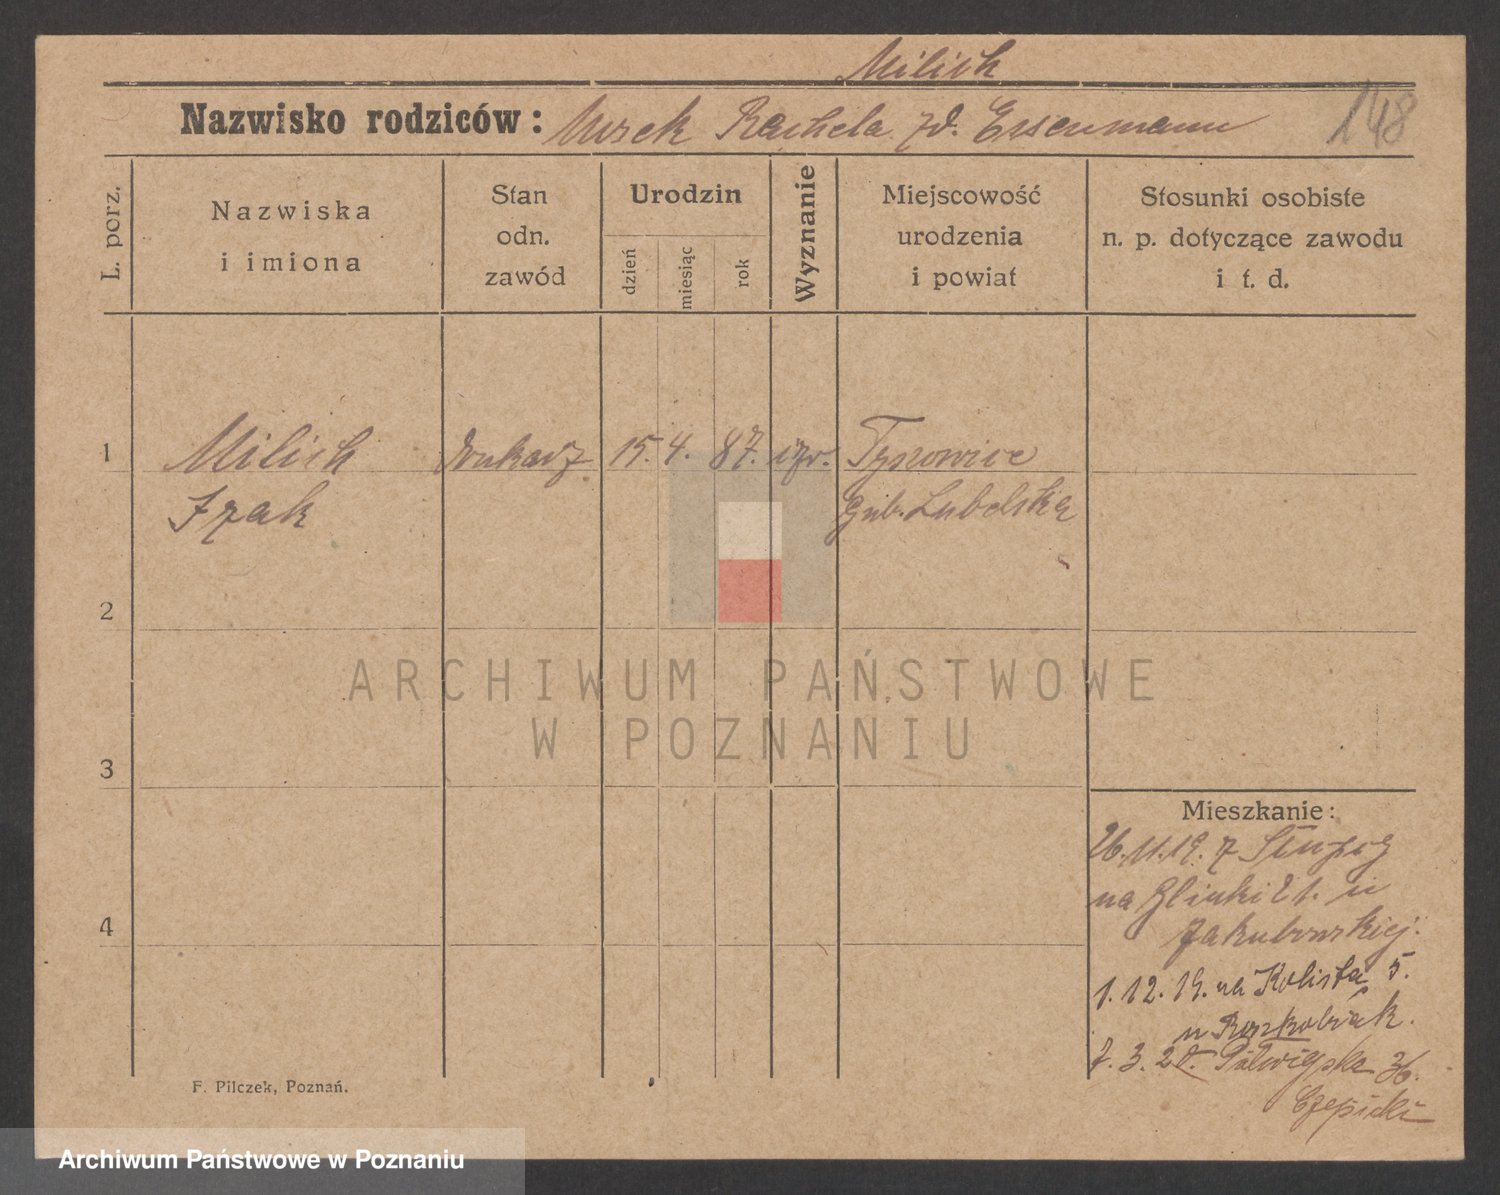 Milich
Nazwisko rodziców: Mosek Rachela zd. Essenmann
148
L. porz.
Nazwiska
i imiona
Stan
odn.
zawód
Urodzin
dzień
miesiąc
rok
Wyznanie
Miejscowość
urodzenia
i powiat
Stosunki osobiste
n. p. dotyczące zawodu
i t. d.
1 Milich drukarz 15. 4. 87. izr. Tyszowice
Izak Gub. Lubelska
2
ARCHIWUM PAŃSTWOWE
W POZNANIU
3
Mieszkanie:
26.11.19. z Słupcy
na Glinki 21. u
4 Jakubowskiej.
1.12.19. na Kolista 5.
u Roszkobiak.
7.3.20. Półwiejska 36.
Czepicki
F. Pilczek, Poznań.
Archiwum Państwowe w Poznaniu